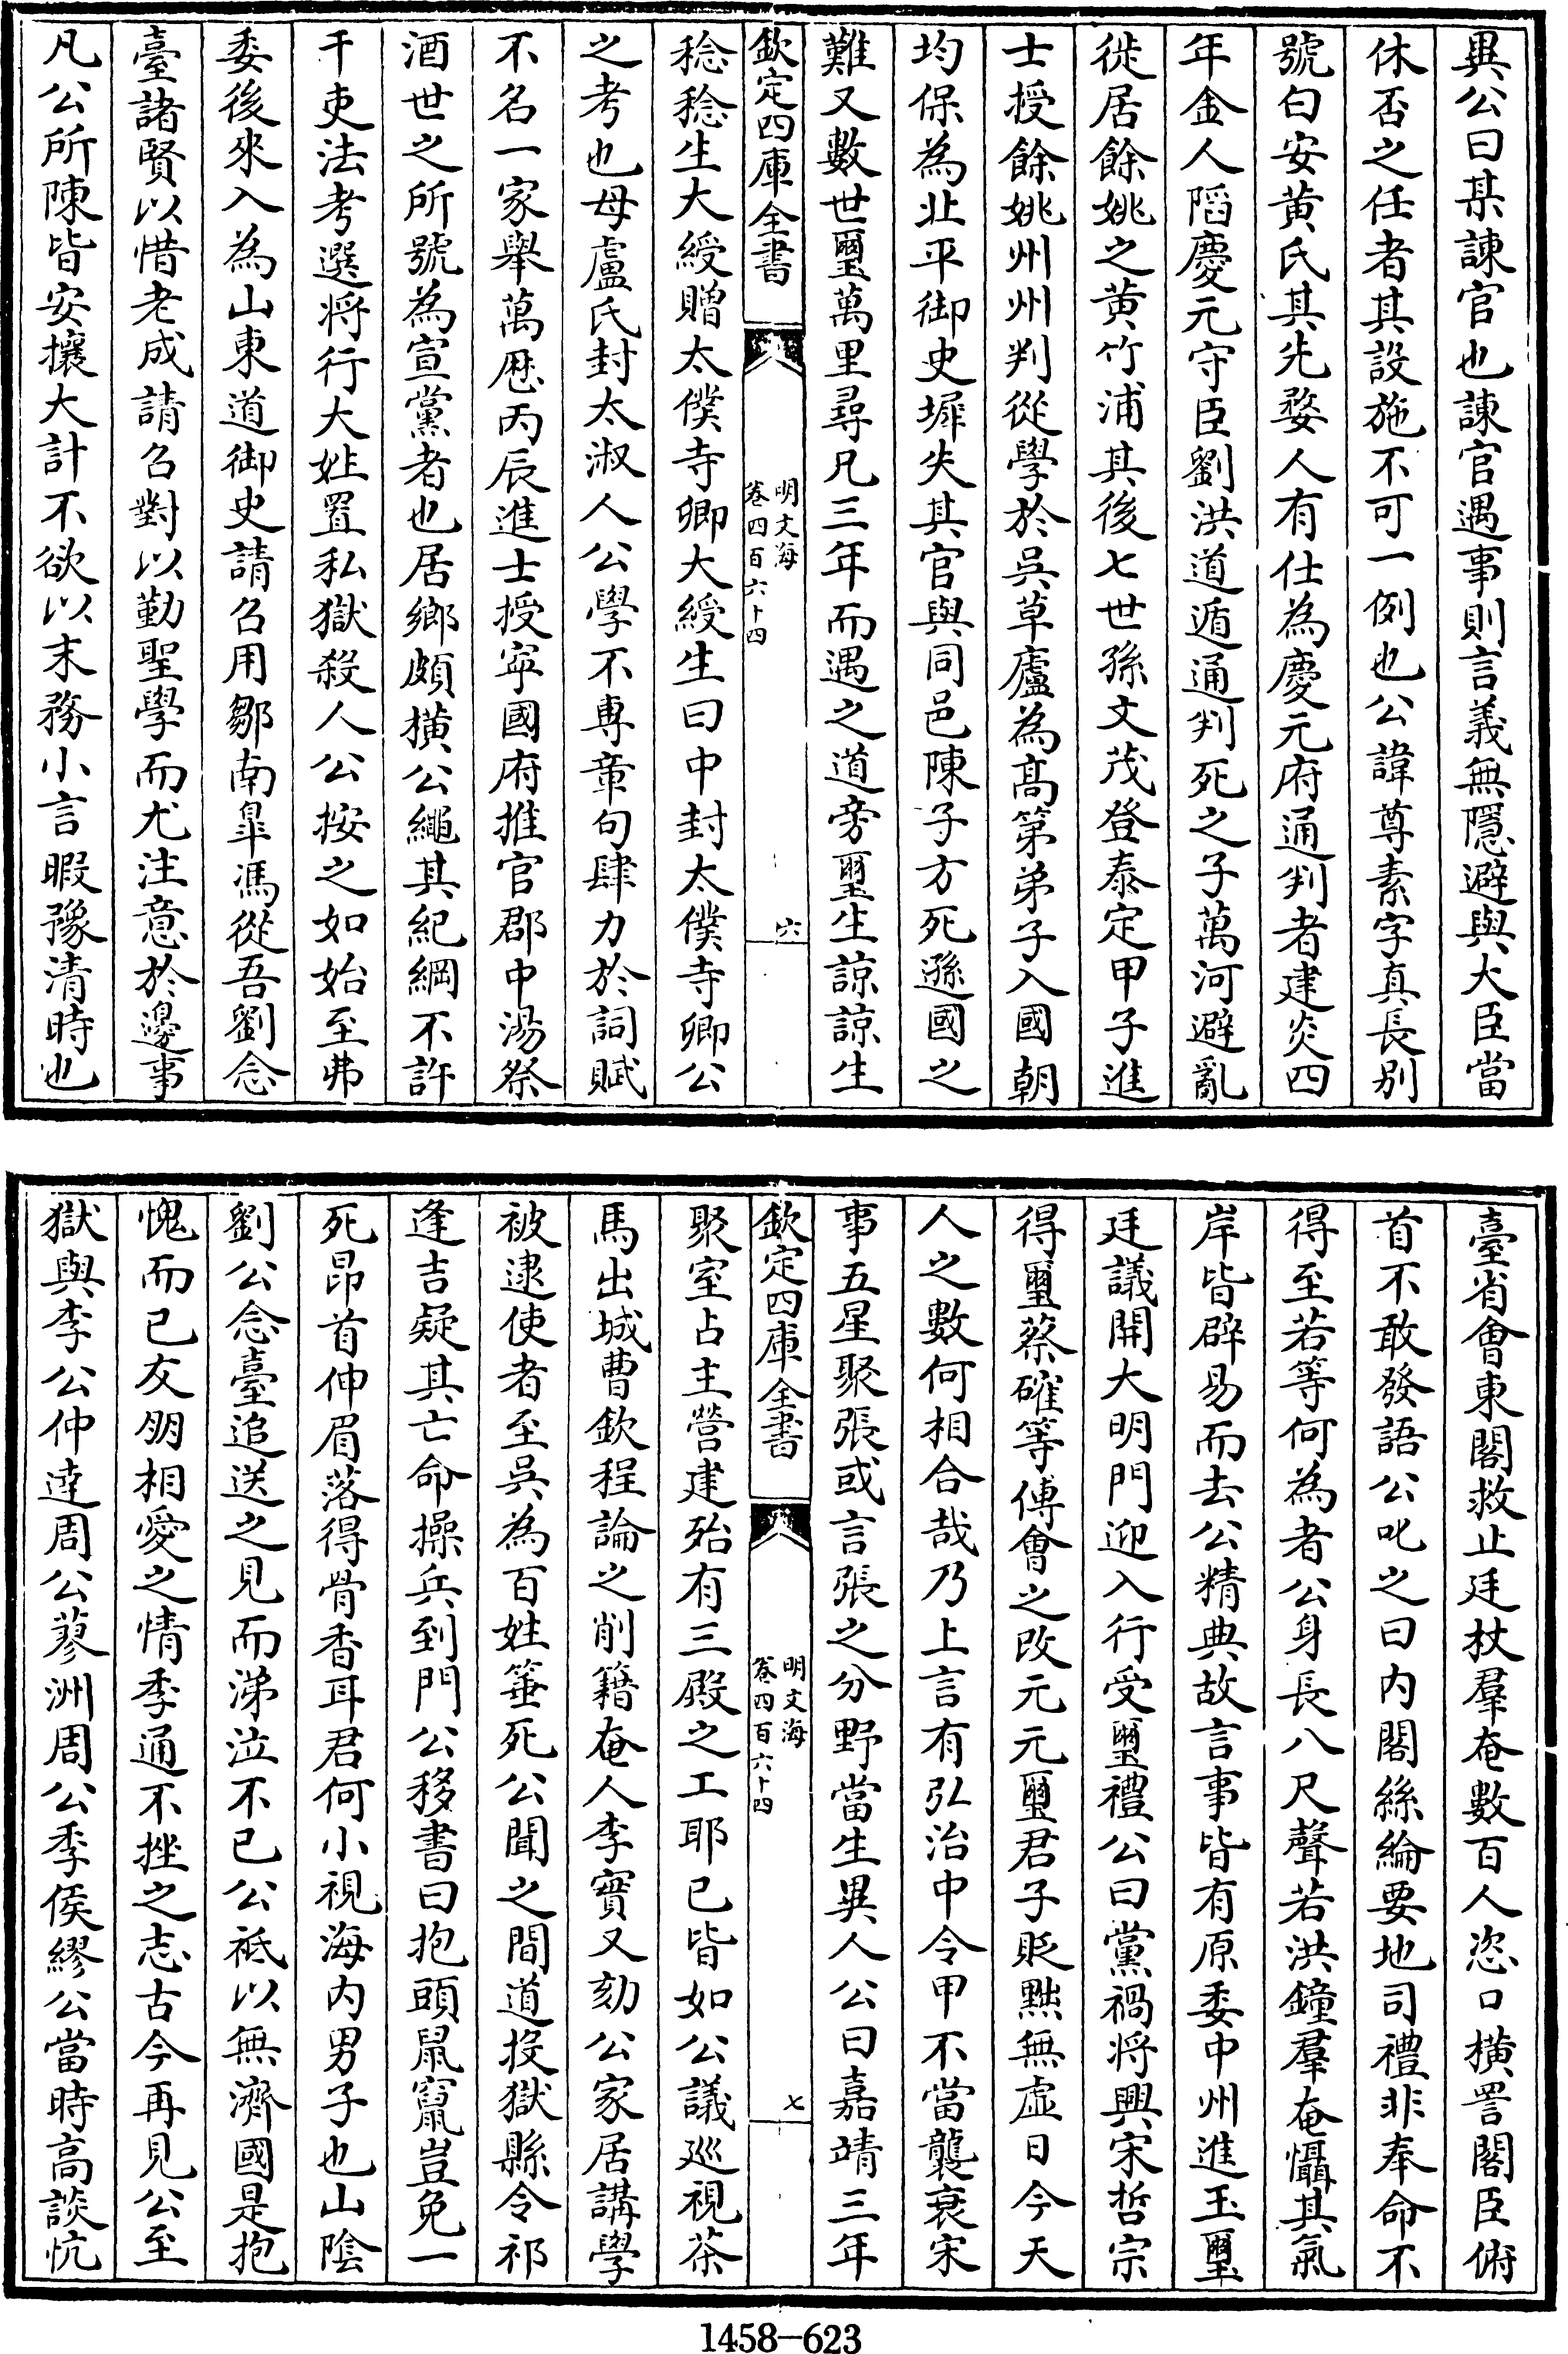 異公曰某諫官也諫官遇事則言義無隱避與大臣當
休否之任者其設施不可一例也公諱尊素字真長别
號白安黄氏其先婺人有仕為慶元府通判者建炎四
年金人䧟慶元守臣劉洪道遁通判死之子萬河避亂
徙居餘姚之黄竹浦其後七世孫文茂登泰定甲子進
士授餘姚州州判從學於吳草廬為高第弟子入國朝
均保為北平御史墀失其官與同邑陳子方死遜國之
難又數世璽萬里尋兄三年而遇之道旁璽生諒諒生
欽定四庫全書
明文海
卷四百六十四
六
稔稔生大綬贈太僕寺卿大綬生曰中封太僕寺卿公
之考也母盧氏封太淑人公學不專章句肆力於詞賦
不名一家舉萬厯丙辰進士授寧國府推官郡中湯祭
酒世之所號為宣黨者也居鄉頗橫公繩其紀綱不許
干吏法考選將行大姓置私獄殺人公按之如始至弗
委後來入為山東道御史請召用鄒南臯馮從吾劉念
臺諸賢以惜老成請召對以勤聖學而尤注意於邊事
凡公所陳皆安攘大計不欲以末務小言暇豫清時也
臺省會東閣救止廷杖羣奄數百人恣口橫詈閣臣俯
首不敢發語公叱之曰内閣絲綸要地司禮非奉命不
得至若等何為者公身長八尺聲若洪鐘羣奄懾其氣
岸皆辟易而去公精典故言事皆有原委中州進玉璽
廷議開大明門迎入行受璽禮公曰黨禍将興宋哲宗
得璽蔡確等傅會之改元元璽君子貶黜無虛日今天
人之數何相合哉乃上言有弘治中令甲不當襲衰宋
事五星聚張或言張之分野當生異人公曰嘉靖三年
欽定四庫全書
明文海
卷四百六十四
七
聚室占主營建殆有三殿之工耶已皆如公議巡視茶
馬出城曹欽程論之削籍奄人李實又劾公家居講學
被逮使者至吳為百姓箠死公聞之間道投獄縣令祁
逢吉疑其亡命操兵到門公移書曰抱頭鼠竄豈免一
死昂首伸眉落得骨香耳君何小視海内男子也山隂
劉公念臺追送之見而涕泣不已公祗以無濟國是抱
愧而已友朋相愛之情季通不挫之志古今再見公至
獄與李公仲達周公蓼洲周公季侯繆公當時高談忼
1458-623